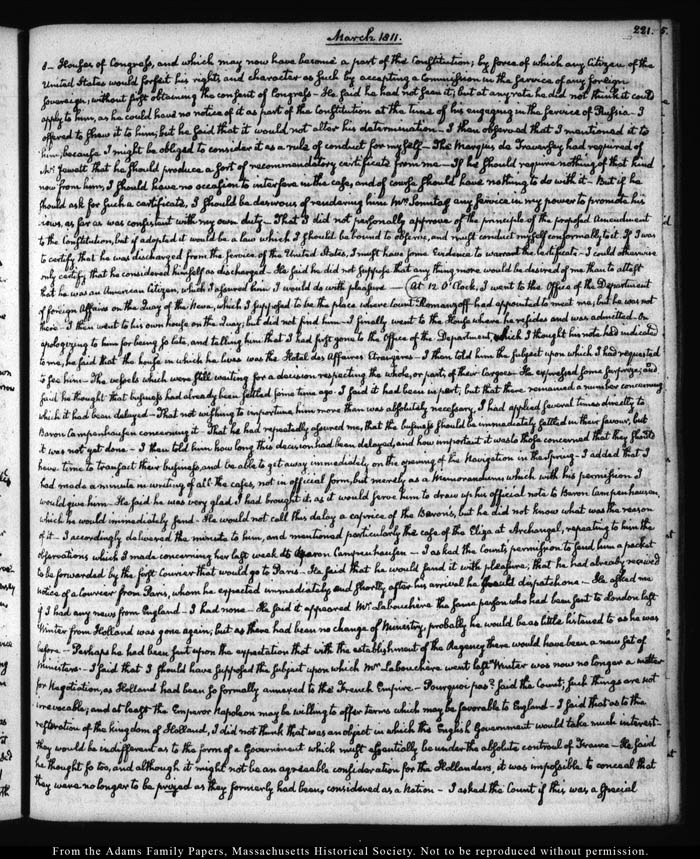 March 1811.
221.
8 - Houses of Congress, and which may now have become a part of the Constitution; by force of which any Citizen of the
United States would forfeit his rights and character as such by accepting a Commission in the service of any foreign
Sovereign; without first obtaining the consent of Congress - He said he had not seen it; but at any rate he did not think it could
apply to him, as he could have no notice of it as part of the Constitution at the time of his engaging in the service of Russia - I
offered to shew it to him; but he said that it would not alter his determination - I then observed that I mentioned it to
him, because I might be obliged to consider it as a rule of conduct for myself - The Marquis de Traversay had required of
Mr. Fawell that he should produce a sort of recommendatory certificate from me - If he should require nothing of that kind
now from him, I should have no occasion to interfere in the case, and of course should have nothing to do with it - But if he
should ask for such a certificate, I should be desirous of rendering him Mr. Sontag any service in my power to promote his
views, as far as was consistent with my own duty - That I did not personally approve of the principle of the proposed Amendment
to the Constitution, but if adopted it would be a law which I should be bound to observe, and must conduct myself conformably to it. If I was
to certify, that he was discharged from the service of the United States, I must have some evidence to warrant the Certificate - I could otherwise
only certify, that he considered himself as discharged - He said he did not suppose that any thing more would be desired of me than to attest
that he was an American Citizen, which I assured him I would do with pleasure - (At 12 O'Clock, I went to the Office of the Department
of foreign Affairs on the Quay of the Neva, which I supposed to be the place where Count Romanzoff had appointed to meet me; but he was not
there - I then went to his own house on the Quay; but did not find him - I finally went to the House where he resides and was admitted. On
apologizing to him for being so late, and telling him that I had first gone to the Office of the Department, which I thought his note had indicated
to me, he said that the house in which he lives was the Hotel des Affaires Etrangeres - I then told him the subject upon which I had requested
to see him - The vessels which were still waiting for a decision respecting the whole, or part, of their Cargoes - He expressed some surprize; and
said he thought that business had already been settled some time ago - I said it had been in part, but that there remained a number concerning
which it had been delayed - That not wishing to importune him more than was absolutely necessary, I had applied several times directly to
Baron Campenhausen concerning it - That he had repeatedly assured me, that the business should be immediately settled in their favour, but
it was not yet done - I then told him how long this decision had been delayed, and how important it was to those concerned that they should
have time to transact their business, and be able to get away immediately on the opening of the Navigation in the Spring - I added that I
had made a minute in writing of all the cases, not in official form, but merely as a Memorandum which with his permission I
would give him - He said he was very glad I had brought it, as it would serve him to draw up his official note to Baron Campenhausen,
which he would immediately send - He would not call this delay a caprice of the Baron's, but he did not know what was the reason
of it - I accordingly delivered the minute to him, and mentioned particularly the case of the Eliza at Archangel, repeating to him the
observations which I made concerning her last week to Baron Campenhausen - I asked the Count's permission to send him a packet
to be forwarded by the first Courier that would go to Paris - He said that he would send it with pleasure; that he had already received
notice of a Courier from Paris, whom he expected immediately and shortly after his arrival he should dispatch one - He asked me
if I had any news from England - I had none - He said it appeared Mr. Labouchere the same person who had been sent to London last
Winter from Holland was gone again; but as there had been no change of Ministry, probably he would be as little listened to as he was
before - Perhaps he had been sent upon the expectation that with the establishment of the Regency there would have been a new set of
Ministers - I said that I should have supposed the subject upon which Mr. Labouchere went last Winter was now no longer a matter
for Negotiation, as Holland had been so formally annexed to the French Empire - Pourquoi pas? said the Count; such things are not
irrevocable; and at least the Emperor Napoleon may be willing to offer terms which may be favorable to England - I said that as to the
restoration of the kingdom of Holland, I did not think that was an object in which the English Government would take much interest -
they would be indifferent as to the form of a Government which must essentially be under the absolute controul of France - He said
he thought so too, and although it might not be an agreeable consideration for the Hollanders, it was impossible to conceal that
they were no longer to be prized as they formerly had been, considered as a Nation - I asked the Count if this was a special
From the Adams Family Papers, Massachusetts Historical Society. Not to be reproduced without permission.